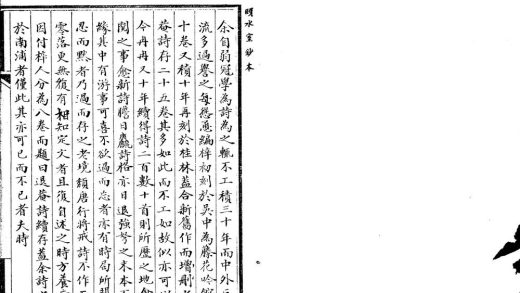 明水室鈔本
余自弱冠學為詩為之輒不工積三十年而中外
流多過譽之每慫恿編梓初刻於吳中為藤花吟
十卷又積十年再刻於桂林蓋合新舊作而增刪
菴詩存二十五卷其多如此而不工如故似亦可以
今冉冉又十年續得詩二百數十首則所歷之地
閱之事愈新詩膽日麤詩格亦日退強弩之末本
緣其中有游事可喜不欲過而忘者亦有時局所
忍而默者乃過而存之老境頹唐行將戒詩不作
零落更無復有相知定文者且復自述之時方養
因付梓人分為八卷而題曰退菴詩續存蓋余詩
於南浦者僅此其亦可已而不已者夫時